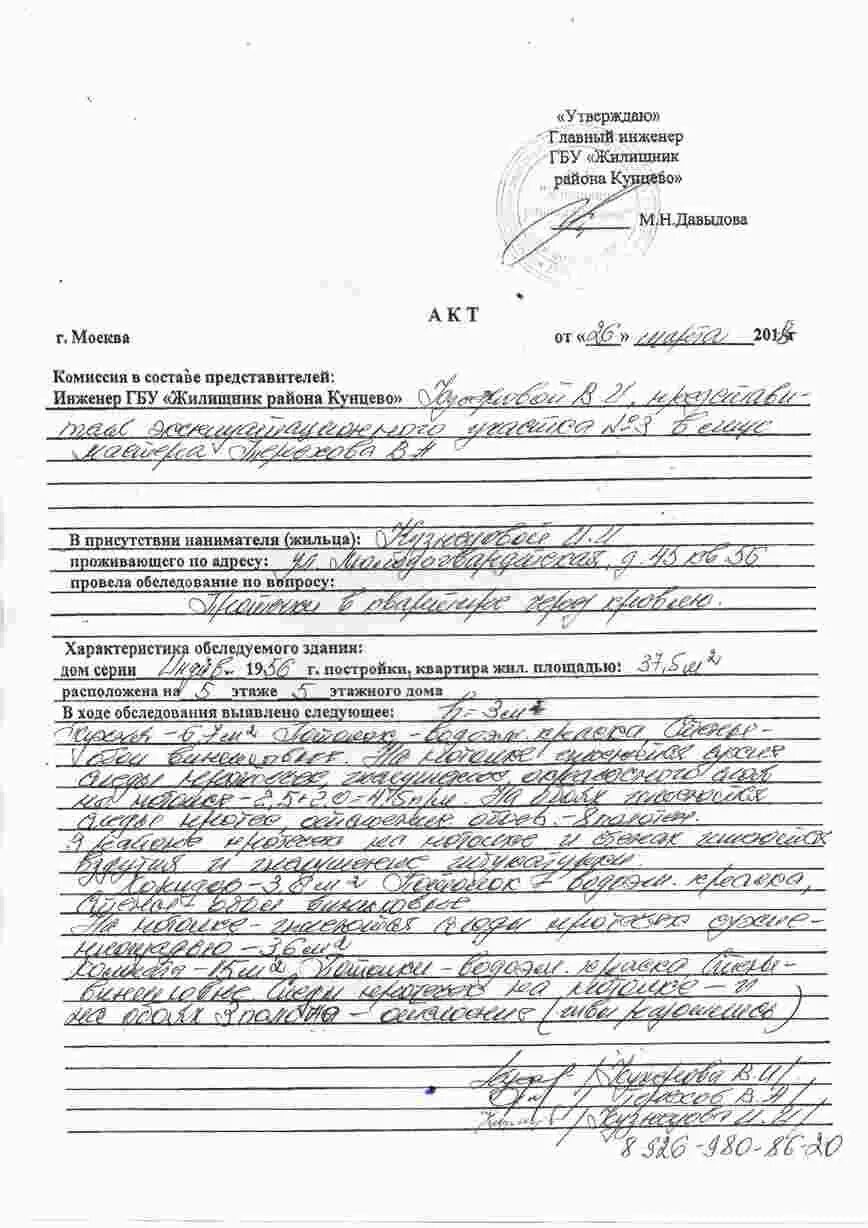 «Утверждаю»
Главный инженер
ГБУ «Жилищник
района Кунцево»
М.Н.Давыдова
АКТ
г. Москва от «26» марта 201
Комиссия в составе представителей:
Инженер ГБУ «Жилищник района Кунцево» В И, представи-
теля эксплуатационного участка №3 в лице
мастера Терехова В А
В присутствии нанимателя (жильца): Кузнецовой И.И
проживающего по адресу: ул Молодогвардейская, д. 45 кв 56
провела обследование по вопросу:
Протечки в квартире через кровлю.
Характеристика обследуемого здания:
дом серии Индив. 1956 г. постройки, квартира жил. площадью: 37,5 м²
расположена на 5 этаже 5 этажного дома
В ходе обследования выявлено следующее: h = 3 м
Кухня - 6,7 м² Потолок - водоэм. краска, Стены -
обои виниловые. На потолке имеются сухие
следы протечек, окрасочного слоя
на потолке - На обоях имеются
следы протечек, отслоение обоев -
В районе протечек на потолке и стенах имеются
вздутия и нарушение штукатурки.
Коридор - 3,8 м² Потолок - водоэм. краска,
Стены обои виниловые
На потолке имеются следы протечек сухие -
площадью - 3,6 м²
Комната - 15 м², Потолки - водоэм. краска Стены -
виниловые. Следы протечек на потолке - и
на обоях 3 полотна - отслоение (швы разошлись)
В.И /
/ Терехов В.А /
/ Кузнецова И.И /
8 926-980-86-20